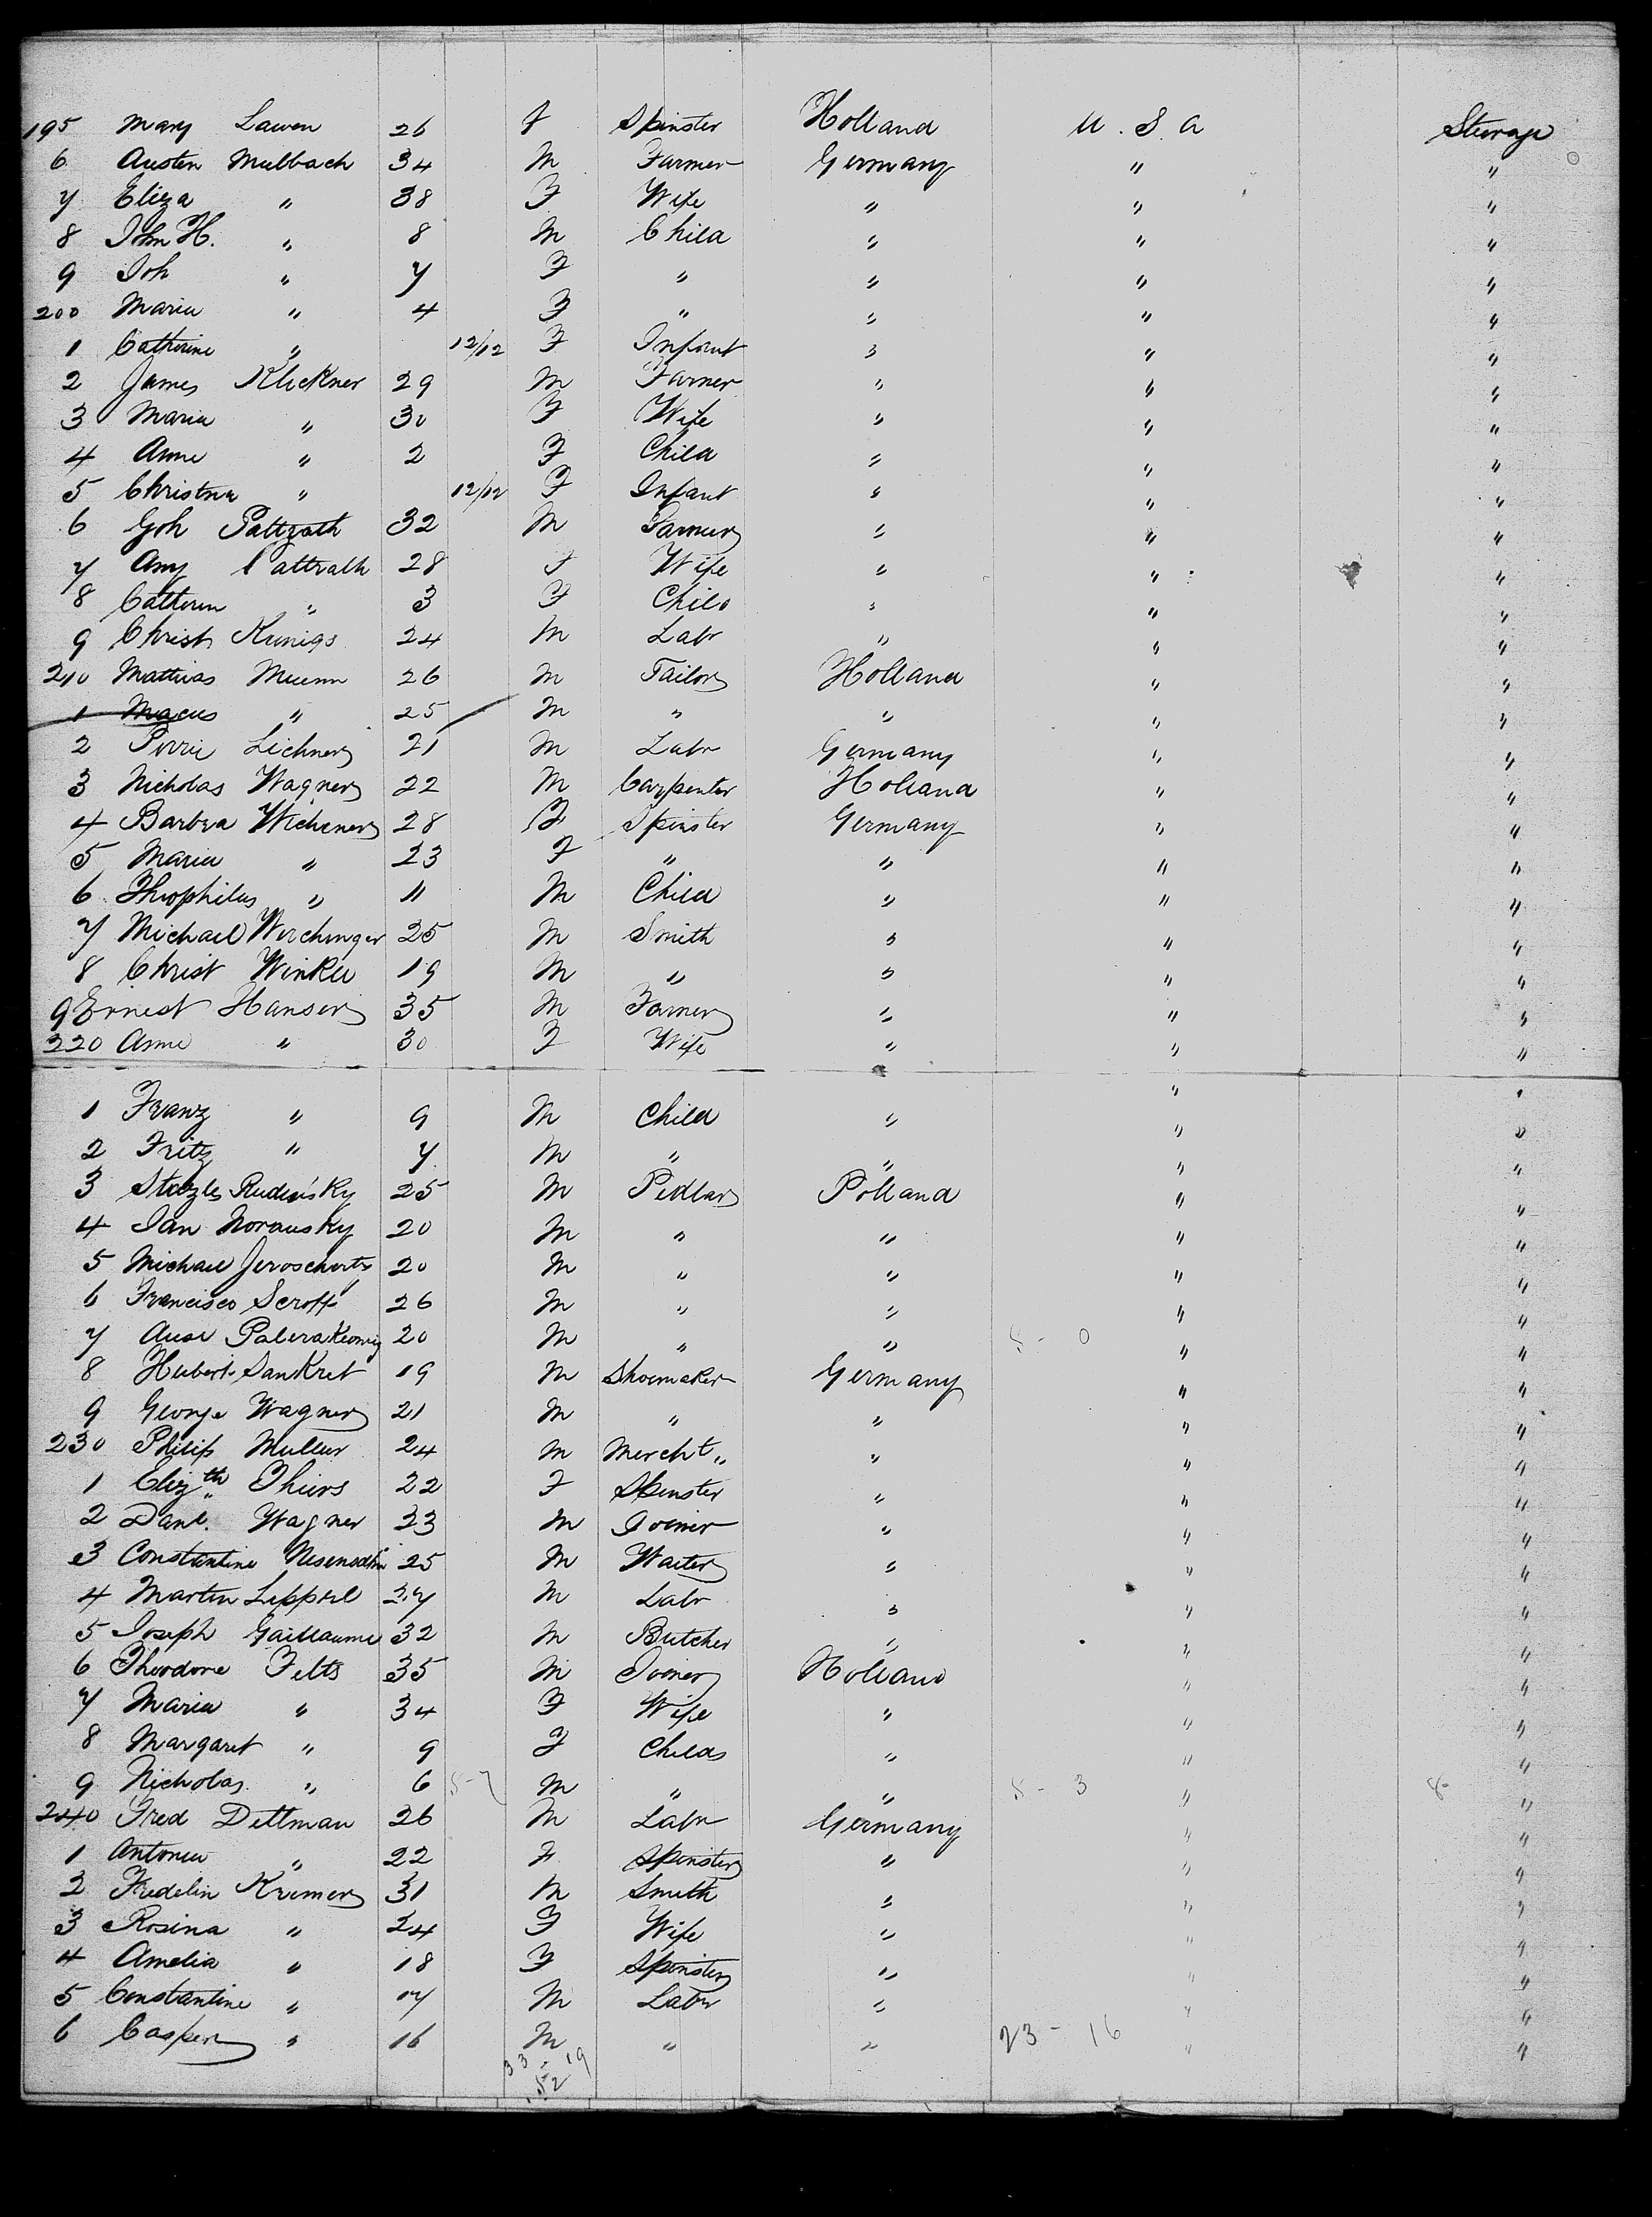 195 Mary Lawen 26 F Spinster Holland U. S. A Steerage
6 Austen Mulbach 34 M Farmer Germany " "
7 Eliza " 38 F Wife " " "
8 John H. " 8 M Child " " "
9 Joh " 7 F " " " "
200 Maria " 4 F " " " "
1 Catherine " 12/12 F Infant " " "
2 James Klickner 29 M Farmer " " "
3 Maria " 30 F Wife " " "
4 Anne " 2 F Child " " "
5 Christina " 12/12 F Infant " " "
6 Joh Pattrath 32 M Farmer " " "
7 Amy Pattrath 28 F Wife " " "
8 Catheren " 3 F Child " " "
9 Christ Kunigs 24 M Labr " " "
210 Mathias Muenn 26 M Tailor Holland " "
1 Macus " 25 M " " " "
2 Pirrie Lichner 21 M Labr Germany " "
3 Nicholas Wagner 22 M Carpenter Holland " "
4 Barbra Wichener 28 F Spinster Germany " "
5 Maria " 23 F " " " "
6 Theophilus " 11 M Child " " "
7 Michael Wirchinger 25 M Smith " " "
8 Christ Winkle 19 M " " " "
9 Ernest Hanser 35 M Farmer " " "
220 Anne " 30 F Wife " " "
1 Franz " 9 M Child " " "
2 Fritz " 7 M " " " "
3 Rudinsky 25 M Pedlar Polland " "
4 Jan Norausky 20 M " " " "
5 Michael Jeroschortz 20 M " " " "
6 Francisco Scroff 26 M " " " "
7 20 M " " 5 - 0 " "
8 Hubert Sankret 19 M Shoemaker Germany " "
9 George Wagner 21 M " " " "
230 Philip Muller 24 M Mercht " " "
1 Elizth Thiers 22 F Spinster " " "
2 Danl. Wagner 23 M Joiner " " "
3 Constantine 25 M Waiter " " "
4 Martin Leppel 27 M Labr " " "
5 Joseph Gaillaume 32 M Butcher " " "
6 Theodore Felts 35 M Joiner Holland " "
7 Maria " 34 F Wife " " "
8 Margaret " 9 F Childs " " "
9 Nicholas " 6 5-7 M " " 5 - 3 " 8-
240 Fred Dettman 26 M Labr Germany " "
1 Antonia " 22 F Spinster " " "
2 Fredelin Kremer 31 M Smith " " "
3 Rosina " 24 F Wife " " "
4 Amelia " 18 F Spinster " " "
5 Constantine " 17 M Labr " " "
6 Casper " 16 M " " 23 - 16 " "
33 - 19
52